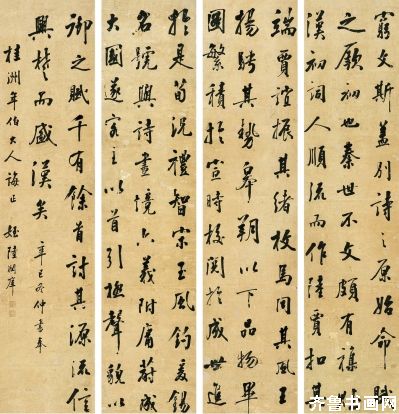 窮文斯蓋別詩之原始命賦
之厥初也秦世不文頗有襍賦
漢初詞人順流而作陸賈扣其
端賈誼振其緒枚馬同其風王
揚騁其勢皋朔以下品物畢
圖繁積於宣時校閱於成世進
於是荀況禮智宋玉風釣爰錫
名號與詩畫境六義附庸蔚成
大國遂客主以首引極聲貌以
御之賦千有餘首討其源流信
興楚而盛漢矣 辛巳冬仲書奉
桂洲年伯大人誨正 姪陸潤庠
齐鲁书画网